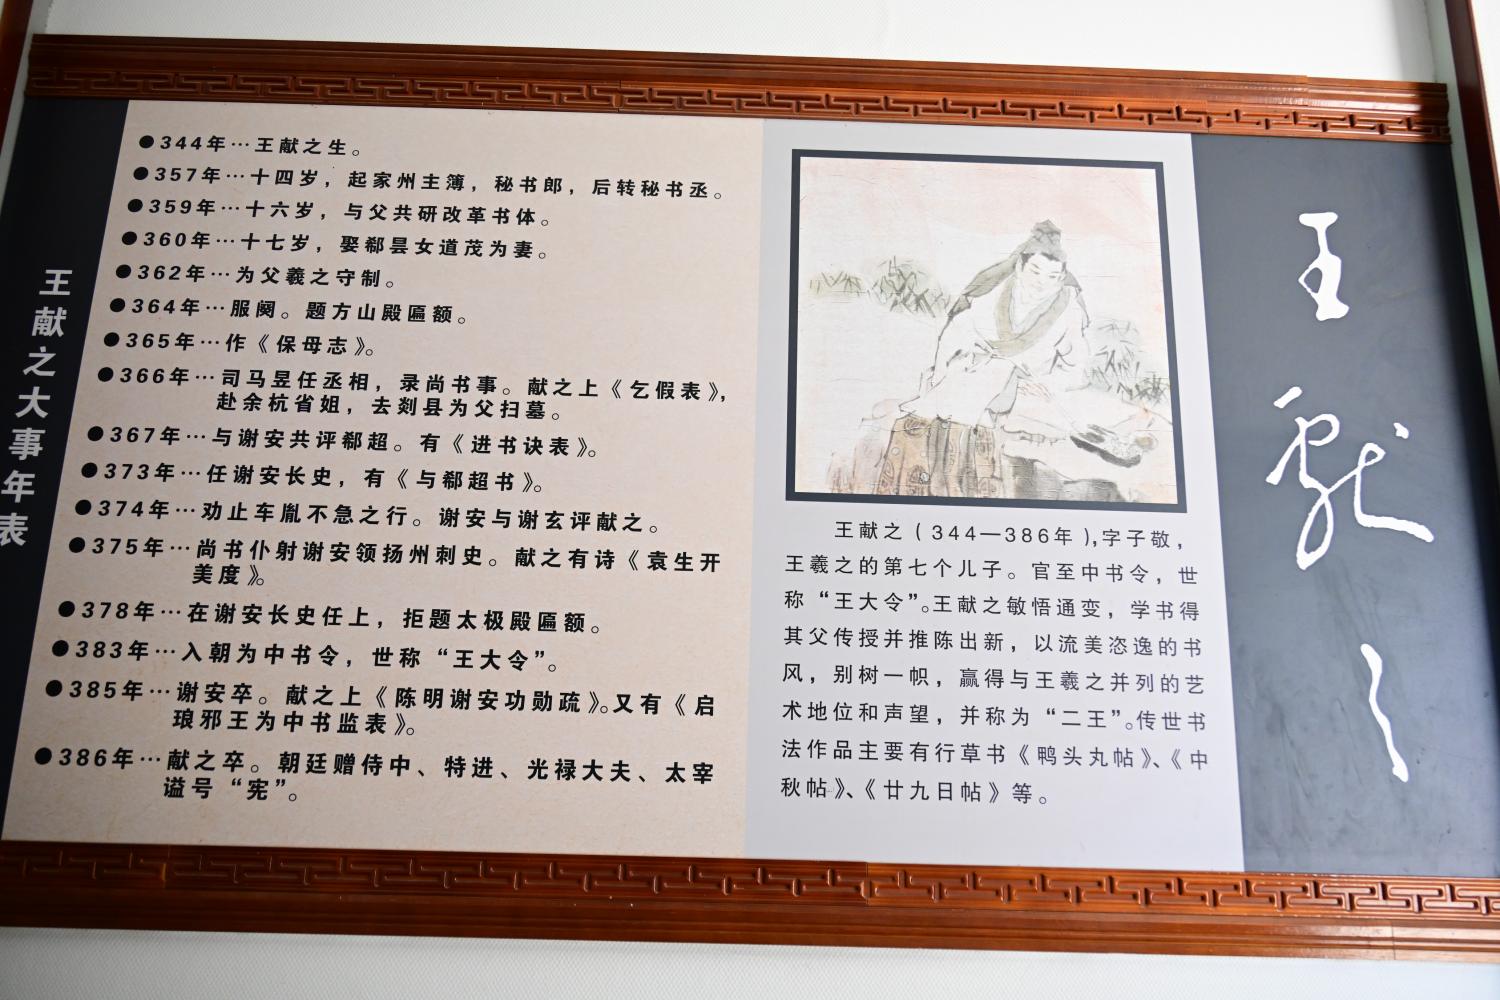 王献之大事年表
●344年…王献之生。
●357年…十四岁，起家州主簿，秘书郎，后转秘书丞。
●359年…十六岁，与父共研改革书体。
●360年…十七岁，娶郗昙女道茂为妻。
●362年…为父羲之守制。
●364年…服阕。题方山殿匾额。
●365年…作《保母志》。
●366年…司马昱任丞相，录尚书事。献之上《乞假表》，
赴余杭省姐，去剡县为父扫墓。
●367年…与谢安共评郗超。有《进书诀表》。
●373年…任谢安长史，有《与郗超书》。
●374年…劝止车胤不急之行。谢安与谢玄评献之。
●375年…尚书仆射谢安领扬州刺史。献之有诗《袁生开
美度》。
●378年…在谢安长史任上，拒题太极殿匾额。
●383年…入朝为中书令，世称“王大令”。
●385年…谢安卒。献之上《陈明谢安功勋疏》。又有《启
琅邪王为中书监表》。
●386年…献之卒。朝廷赠侍中、特进、光禄大夫、太宰
谥号“宪”。
王献之（344—386年），字子敬，
王羲之的第七个儿子。官至中书令，世
称“王大令”。王献之敏悟通变，学书得
其父传授并推陈出新，以流美恣逸的书
风，别树一帜，赢得与王羲之并列的艺
术地位和声望，并称为“二王”。传世书
法作品主要有行草书《鸭头丸帖》、《中
秋帖》、《廿九日帖》等。
王献之